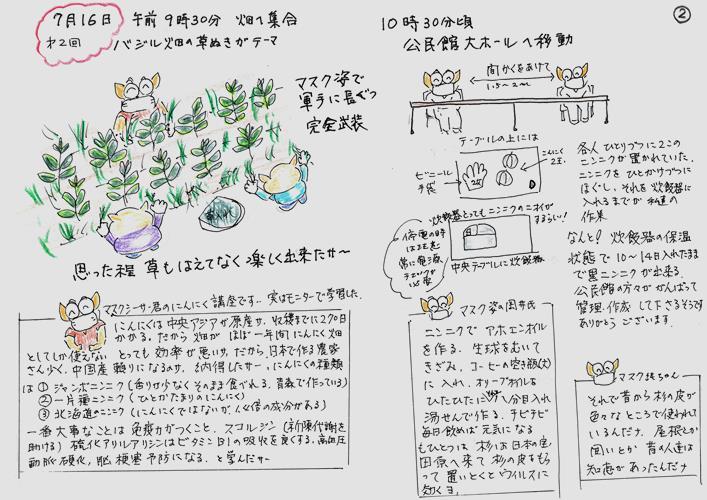 ②
7月16日 午前9時30分 畑へ集合
オ2回 バジル畑の草ぬきがテーマ
マスク姿で
軍手に長ぐつ
完全武装
思った程 草もはえてなく 楽しく出来たサ〜
マスクシーサー君のにんにく講座です‥実はモニターで学習した
にんにくは中央アジアが原産サ、収穫までに270日
かかる。だから 畑が ほぼ一年間にんにく畑
としてしか使えない とっても効率が悪いサ。だから、日本で作る農家
さん少く、中国産頼りになるのサ。納得したサー、にんにくの種類
は ① ジャンボニンニク（香りが少なく そのまま食べれる、青森で作っている）
② 一片種ニンニク（ひとかたまりのにんにく）
③ 北海道のニンニク（にんにくではないが、
倍の成分がある）
一番大事なことは 免疫力がつくこと、スコルジン（新陳代謝を
助ける）硫化アリルアリシンはビタミンB1の吸収を良くする、高血圧
動脈硬化，脳梗塞予防になる．と学んだサー
10時30分頃
公民館大ホールへ移動
間かくをあけて
1.5〜2m
テーブルの上には
ビニール
手袋
にんにく
2玉
各人 ひとりづつに2この
ニンニクが置かれていた。
ニンニクを ひとかけづつに
ほぐし、それを 炊飯器に
入れるまでが 私達の
作業
炊飯器とってもニンニクのニオイが
するらしい！
停電の時
は
常に電源
チェックが
必要
中央テーブルに炊飯器
なんと！ 炊飯器の保温
状態で 10〜14日入れたまま
で黒ニンニクが出来る．
公民館の方々が がんばって
管理・作成 して下さるそうです
ありがとう ございます．
マスク姿の国井氏
ニンニクで アホエンオイル
を作る．生球をむいて
きざみ、コーヒーの空き瓶
に入れ、オリーブオイルを
ひたひたに
八分目入れ
湯せんで作る．チビチビ
毎日飲めば 元気になる
もひとつは 杉は日本の宝
田原へ来て 杉の皮をもら
って 置いとくとウイルスに
効くヨ．
それで昔から杉の皮が
色々なところで使われて
いるんだナ．屋根とか
囲いとか 昔の人達は
知恵があったんだナ